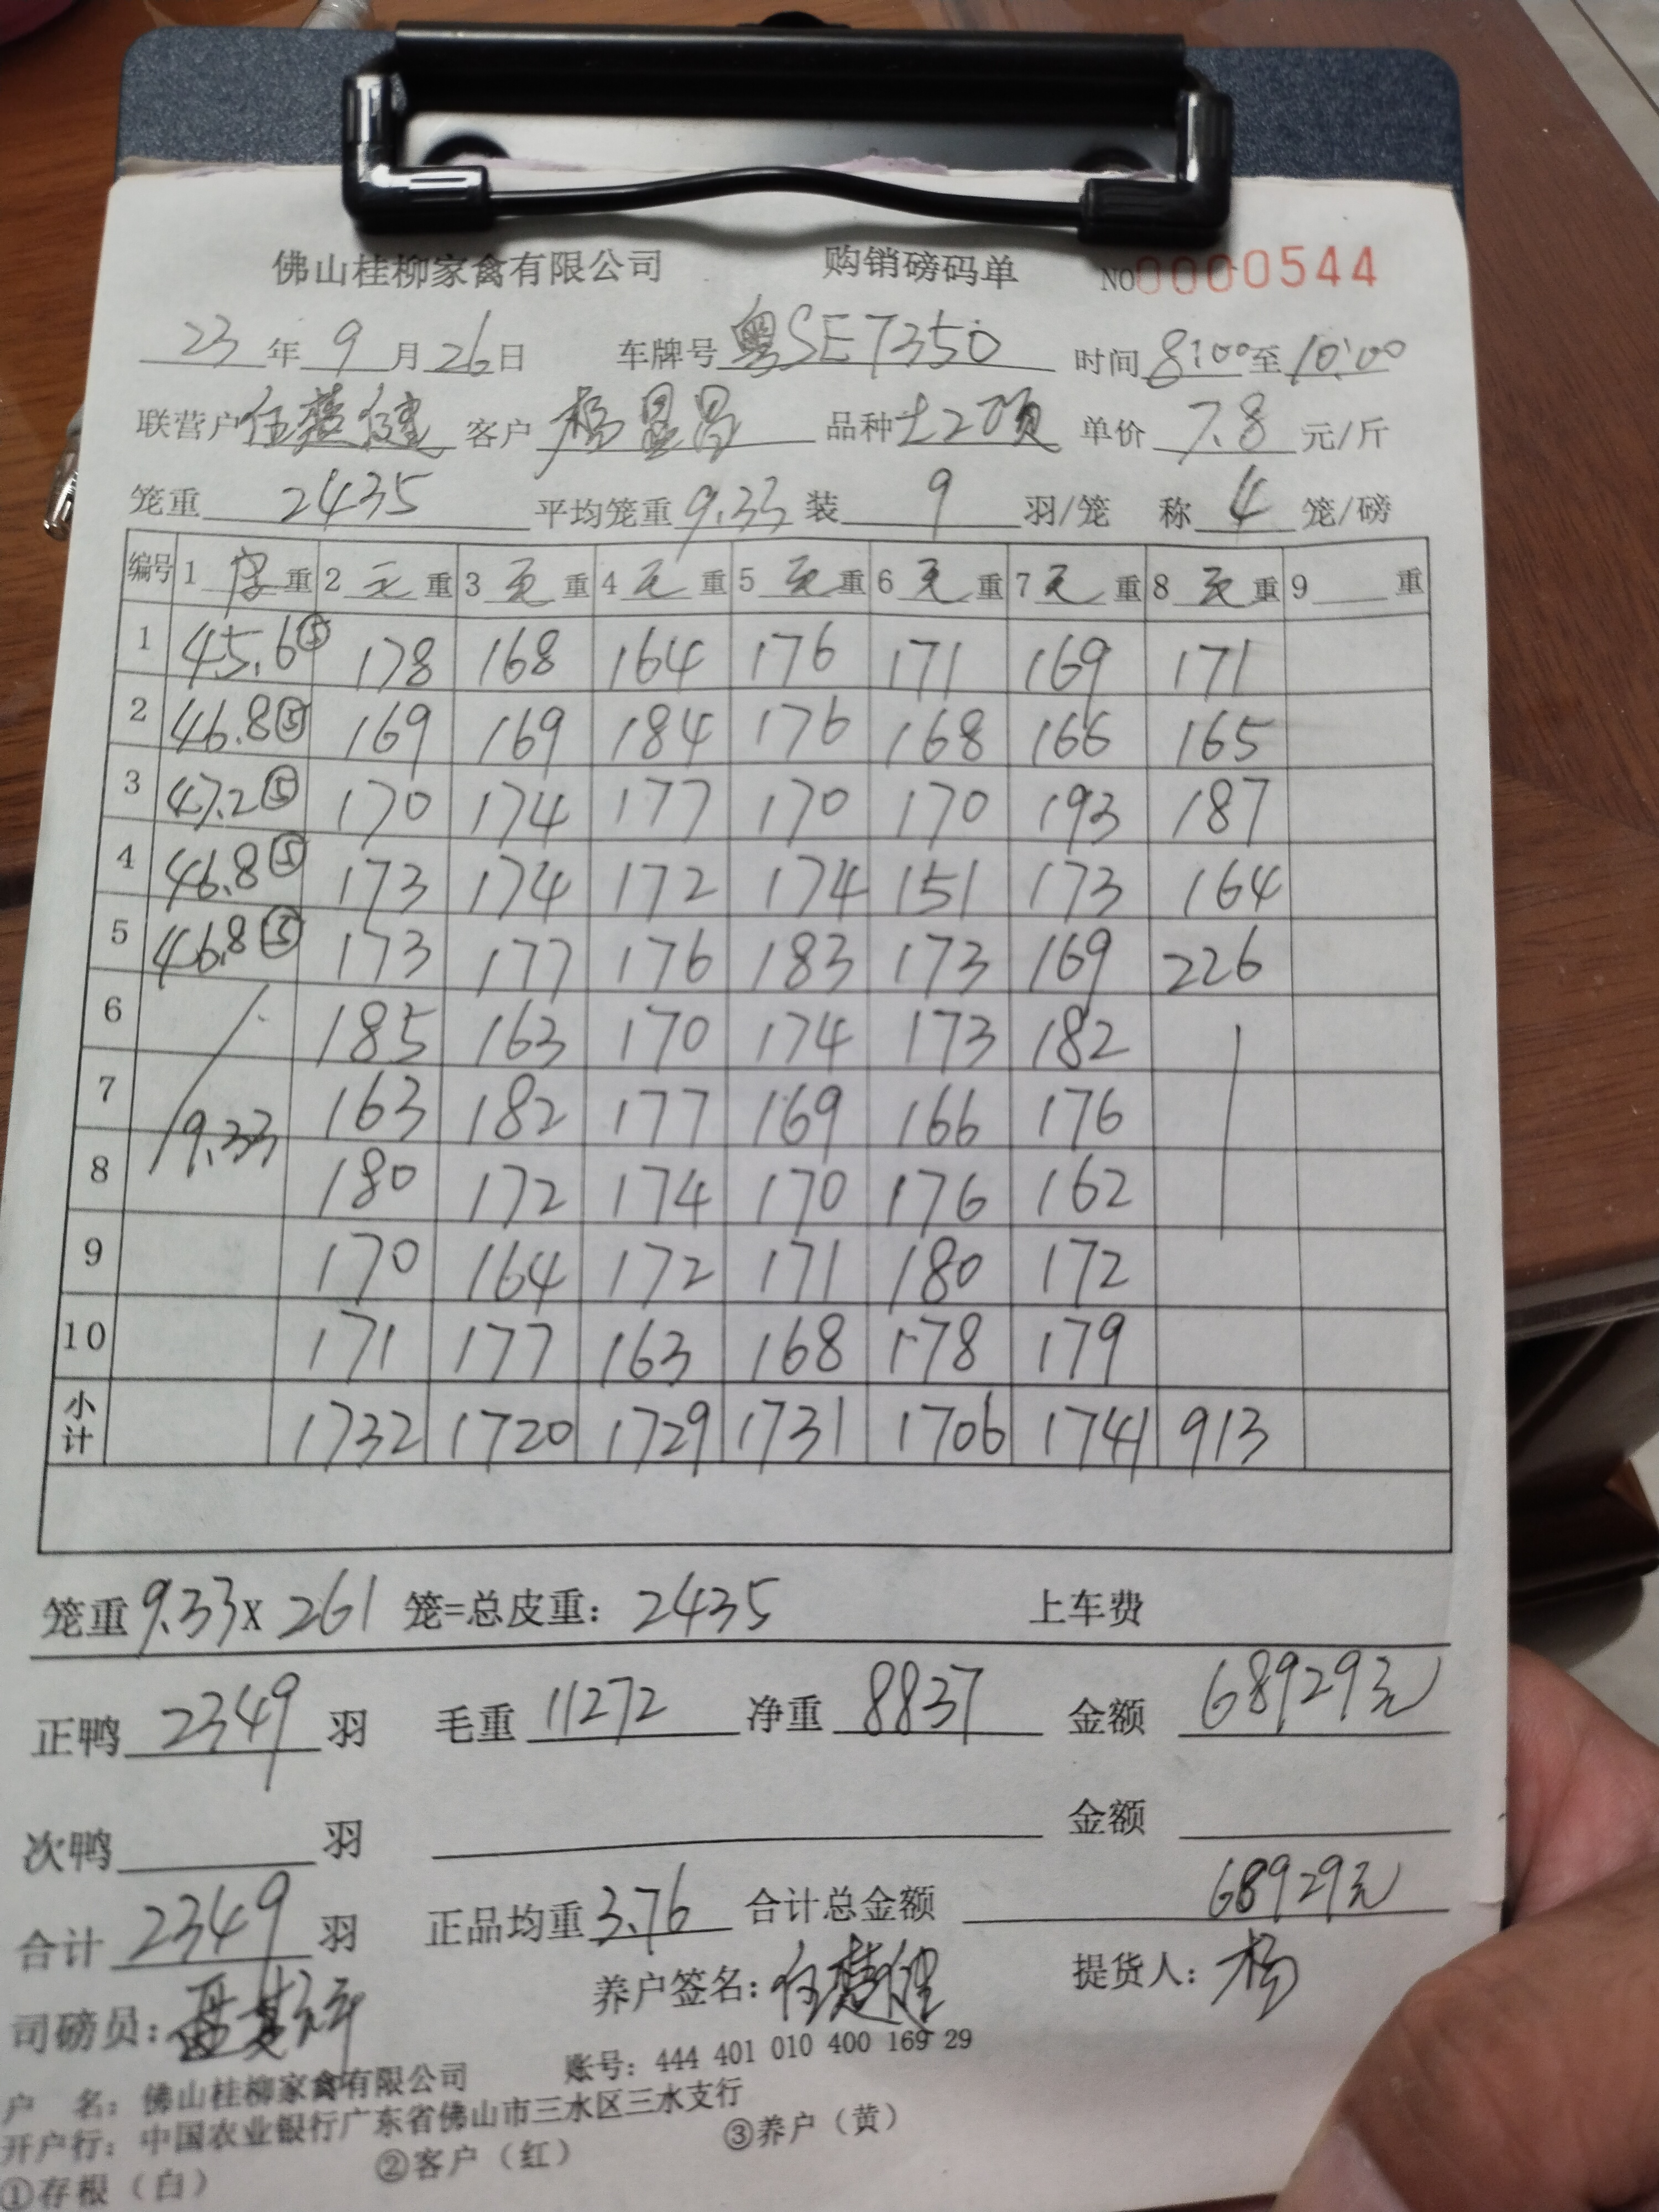 佛山桂柳家禽有限公司 购销磅码单 NO0000544
23年9月26日 车牌号 粤SE7350 时间 8:00至10:00
联营户 任 健 客户 杨 昌 品种 土2项 单价 7.8 元/斤
笼重 2435 平均笼重 9.33 装 9 羽/笼 称 4 笼/磅
编号 1 空 重 2 毛 重 3 毛 重 4 毛 重 5 毛 重 6 毛 重 7 毛 重 8 毛 重 9 重
1 45.6⑤ 178 168 164 176 171 169 171
2 46.8⑤ 169 169 184 176 168 166 165
3 47.2⑤ 170 174 177 170 170 193 187
4 46.8⑤ 173 174 172 174 151 173 164
5 46.8⑤ 173 177 176 183 173 169 226
6 185 163 170 174 173 182
7 163 182 177 169 166 176
9.33
8 180 172 174 170 176 162
9 170 164 172 171 180 172
10 171 177 163 168 178 179
小计 1732 1720 1729 1731 1706 1741 913
笼重 9.33 X 261 笼=总皮重: 2435 上车费
正鸭 2349 羽 毛重 11272 净重 8837 金额 68929元
次鸭 羽 金额
合计 2349 羽 正品均重 3.76 合计总金额 68929元
司磅员: 养户签名: 任 健 提货人: 杨
户 名: 佛山桂柳家禽有限公司 账号: 444 401 010 400 169 29
开户行: 中国农业银行广东省佛山市三水区三水支行
①存根(白) ②客户(红) ③养户(黄)